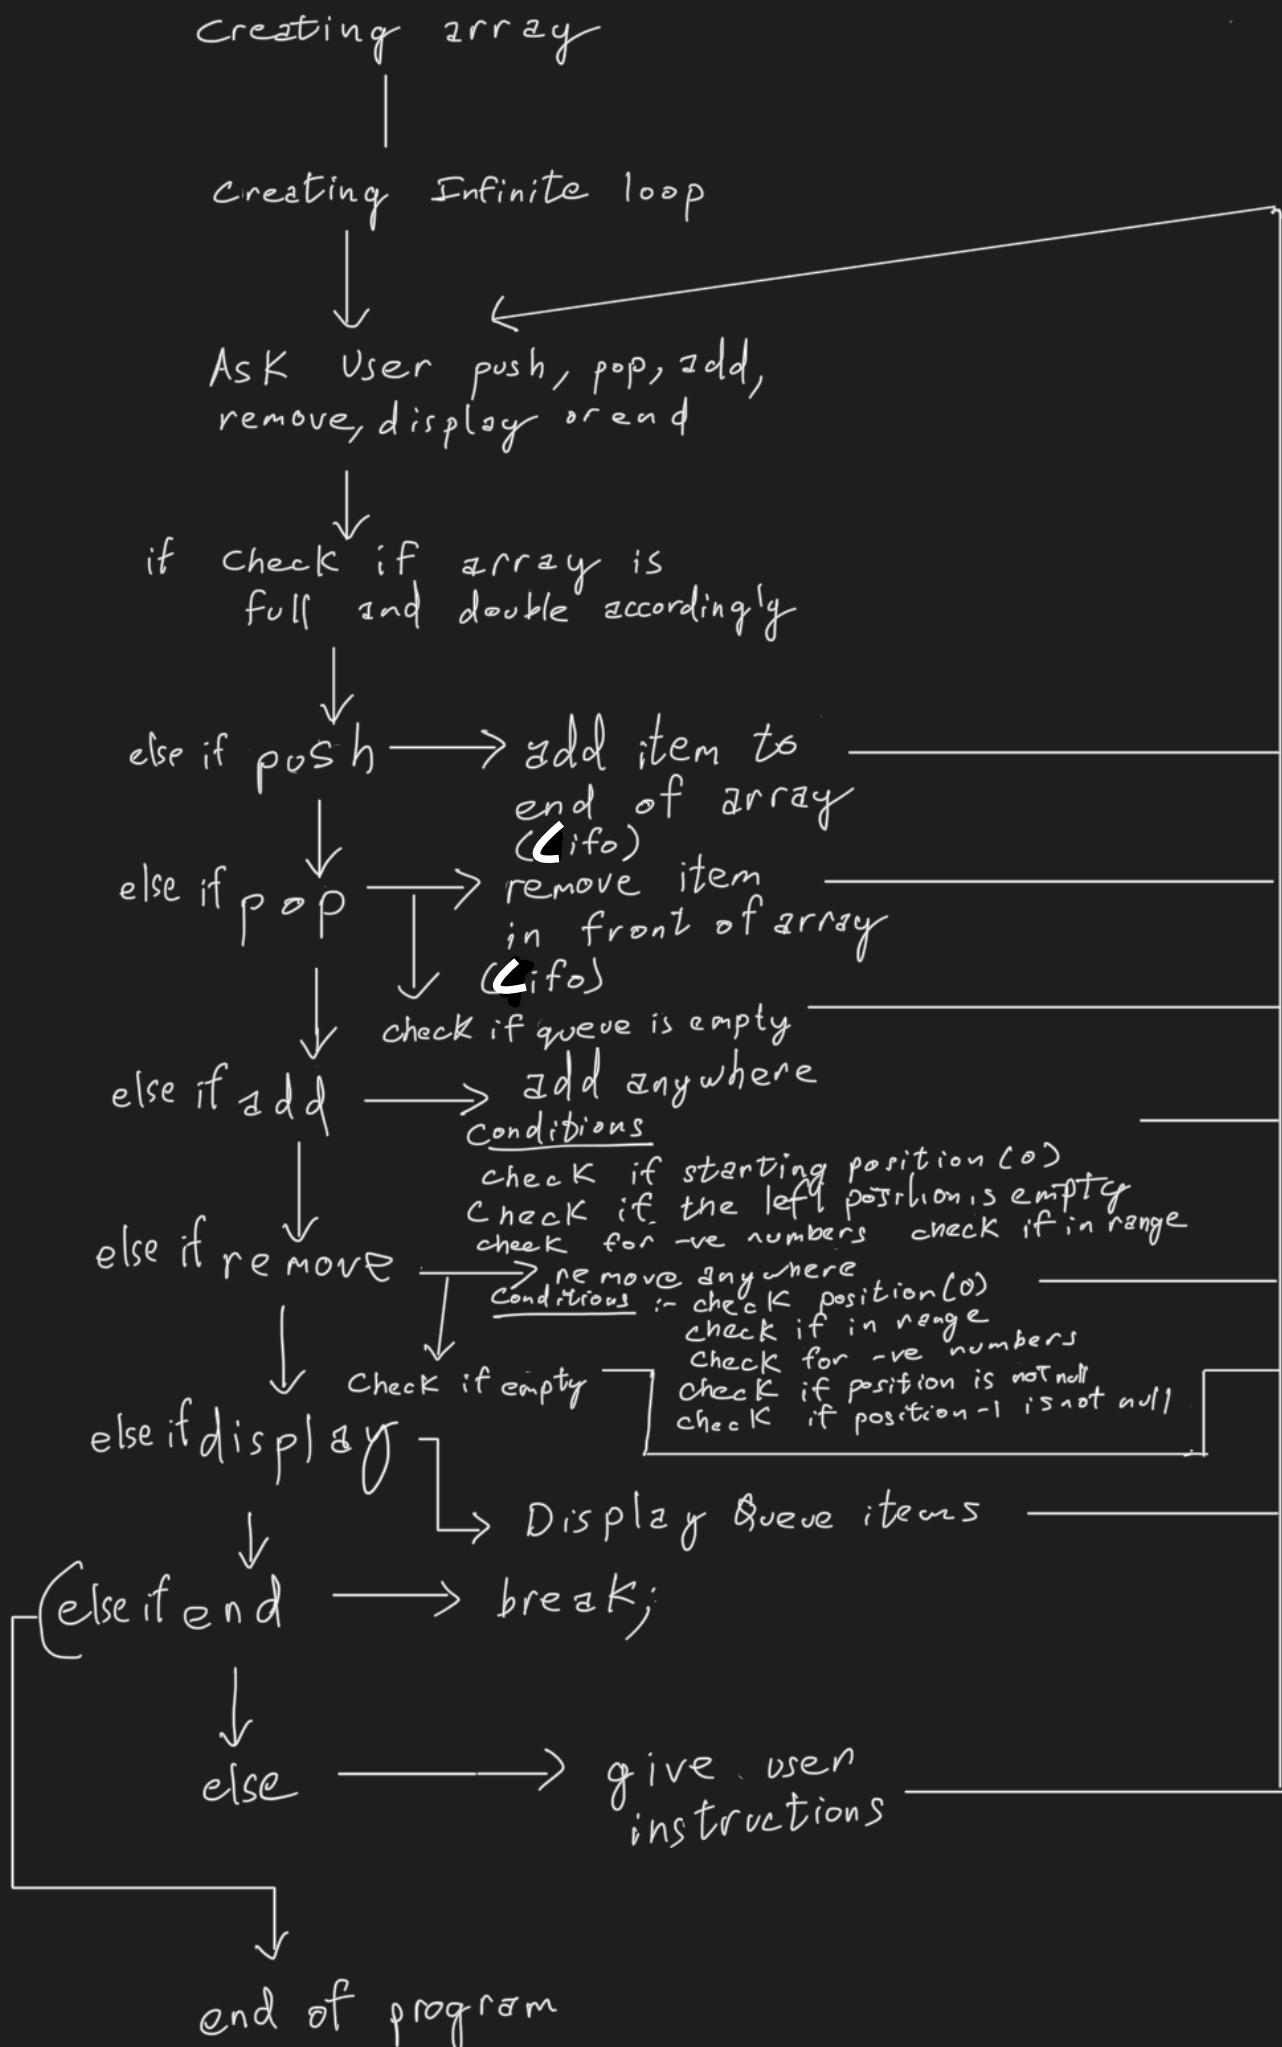 Creating array
Creating Infinite loop
Ask User push, pop, add,
remove, display or end
if Check if array is
full and double accordingly
else if push
add item to
end of array
(Lifo)
else if pop
remove item
in front of array
(Lifo)
check if queue is empty
else if add
add anywhere
Conditions
check if starting position (0)
Check if the left position is empty
check for -ve numbers check if in range
else if remove
remove anywhere
Conditions :- check position (0)
check if in range
check for -ve numbers
check if position is not null
check if position-1 is not null
Check if empty
else if display
Display Queue items
else if end
break;
else
give user
instructions
end of program